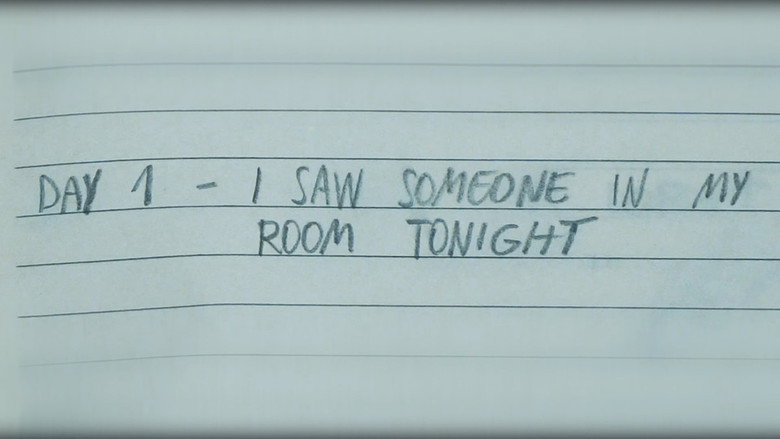 DAY 1 - I SAW SOMEONE IN MY
ROOM TONIGHT